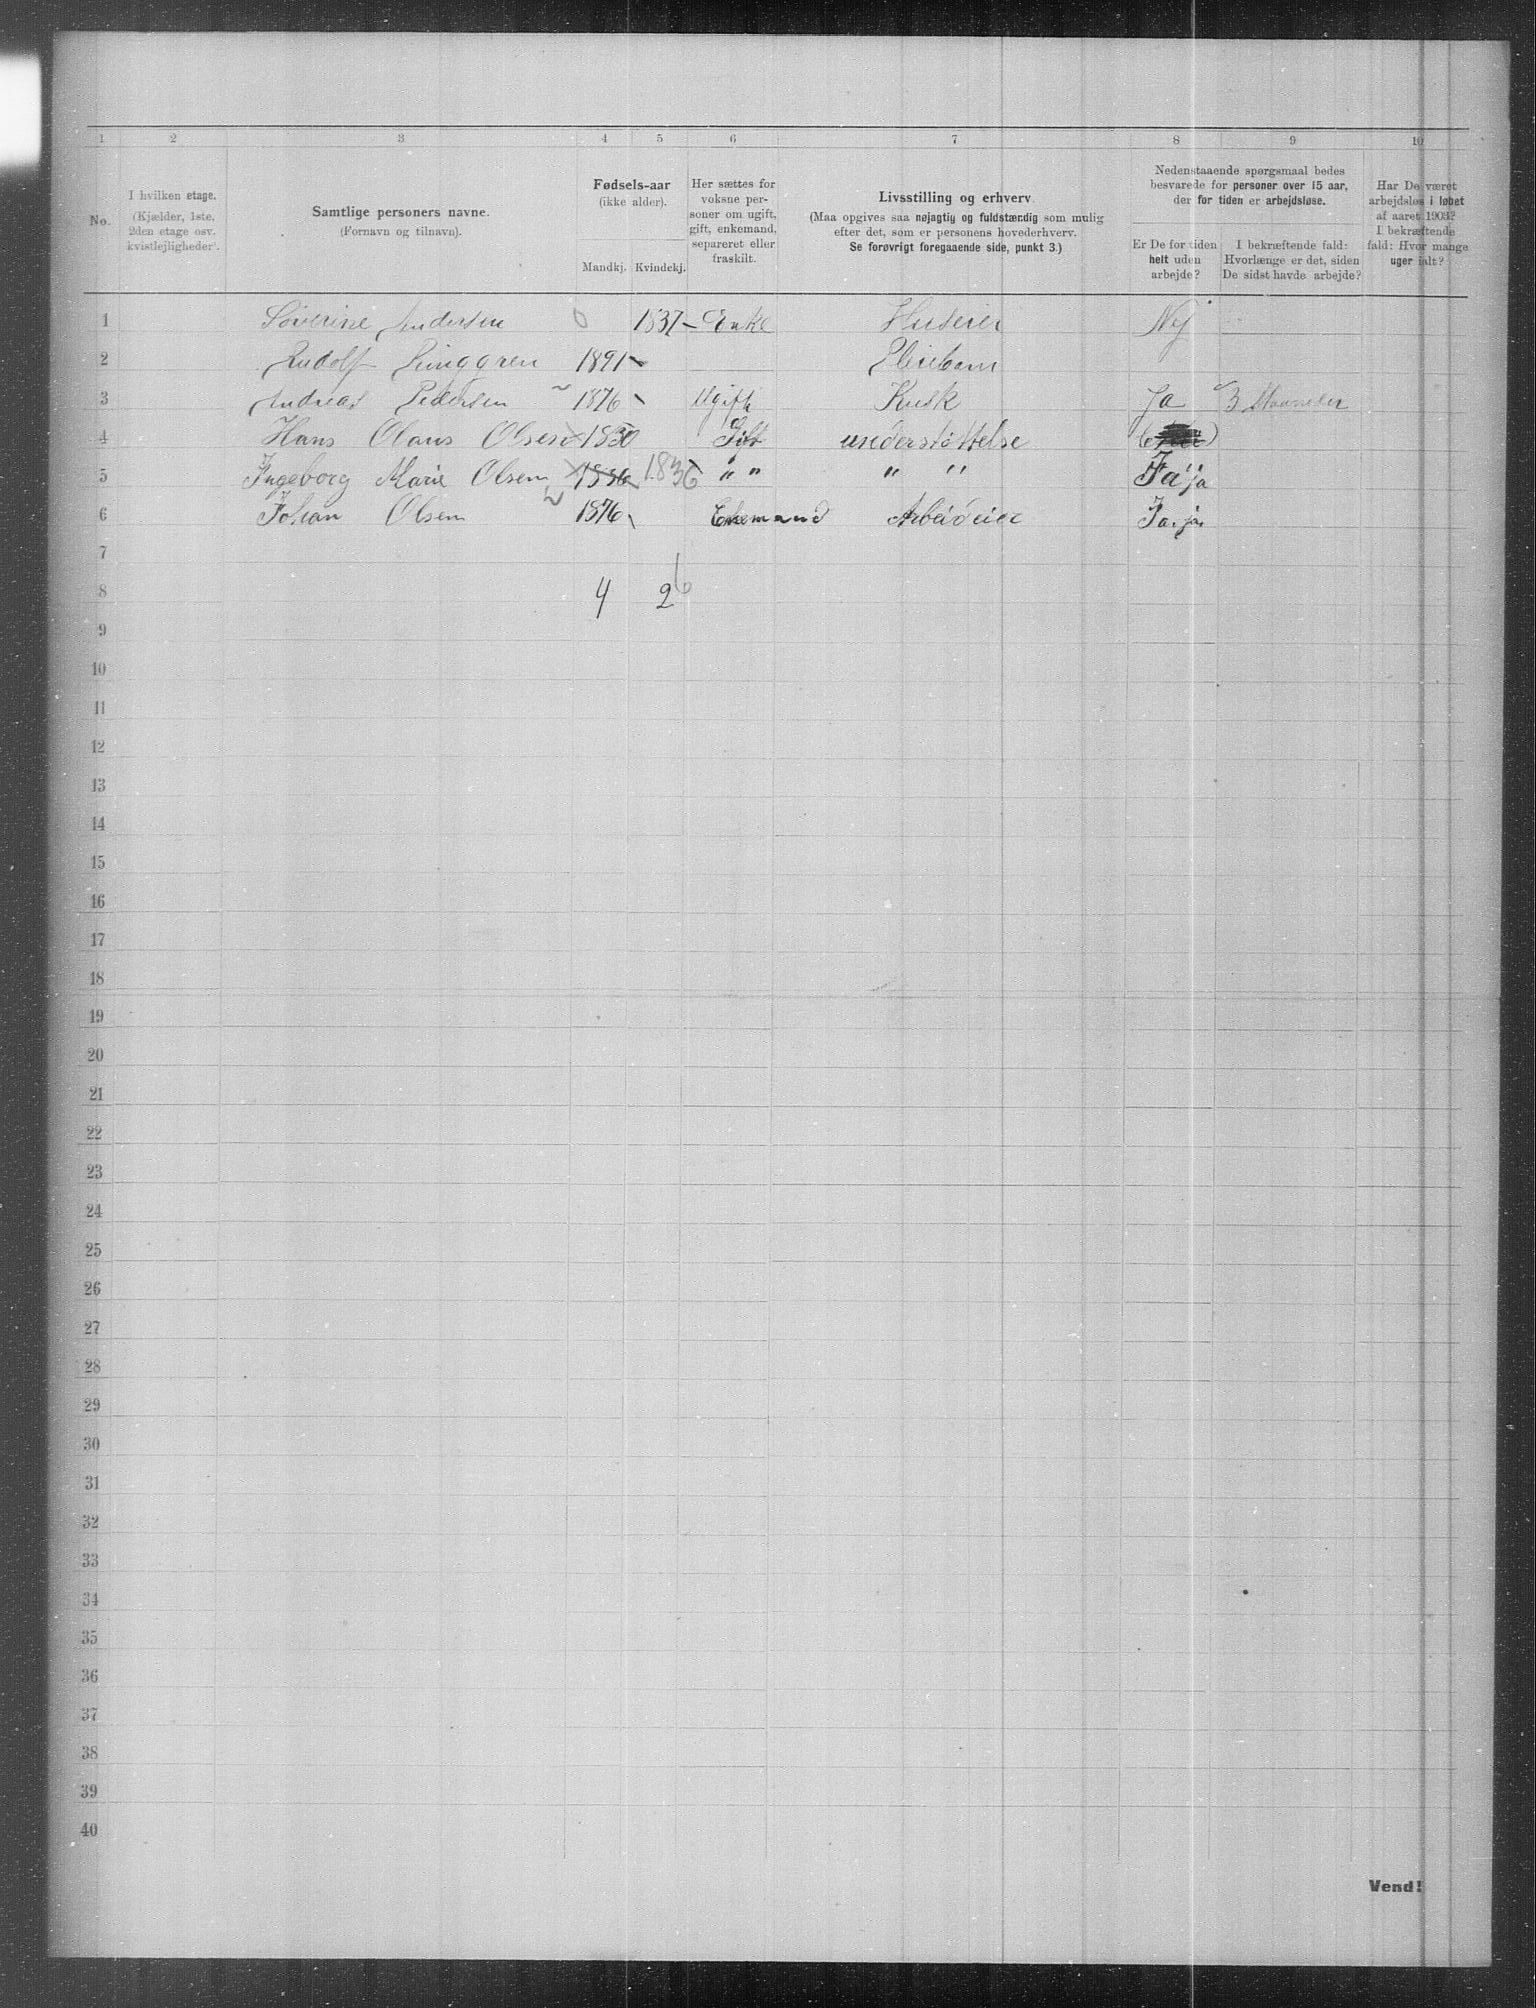 1 2 3 4 5 6 7 8 9 10
No.
I hvilken etage.
(Kjælder, 1ste,
2den etage osv.
kvistlejligheder).
Samtlige personers navne.
(Fornavn og tilnavn).
Fødsels-aar
(ikke alder).
Mandkj. Kvindekj.
Her sættes for
voksne per-
soner om ugift,
gift, enkemand,
separeret eller
fraskilt.
Livsstilling og erhverv.
(Maa opgives saa nøjagtig og fuldstændig som mulig
efter det, som er personens hovederhverv.
Se forøvrigt foregaaende side, punkt 3.)
Nedenstaaende spørgsmaal bedes
besvarede for personer over 15 aar,
der for tiden er arbejdsløse.
Er De for tiden
helt uden
arbejde?
I bekræftende fald:
Hvorlænge er det, siden
De sidst havde arbejde?
Har De været
arbejdsløs i løbet
af aaret 1903?
I bekræftende
fald: Hvor mange
uger ialt?
1 Severine Andersen 0 1837 - Enke Huseier Nej
2 Rudolf Ringgren 1891 Pleiebarn
3 Andreas Pedersen 1876 Ugift Kusk Ja 3 Maaneder
4 Hans Olaus Olsen 1830 Gift understøttelse
5 Ingeborg Marie Olsen 1836 1836 " " " " Ja ja
6 Johan Olsen 1876 Enkemand Arbeideier Ja. ja.
7
8 4 2 6
9
10
11
12
13
14
15
16
17
18
19
20
21
22
23
24
25
26
27
28
29
30
31
32
33
34
35
36
37
38
39
40
Vend!